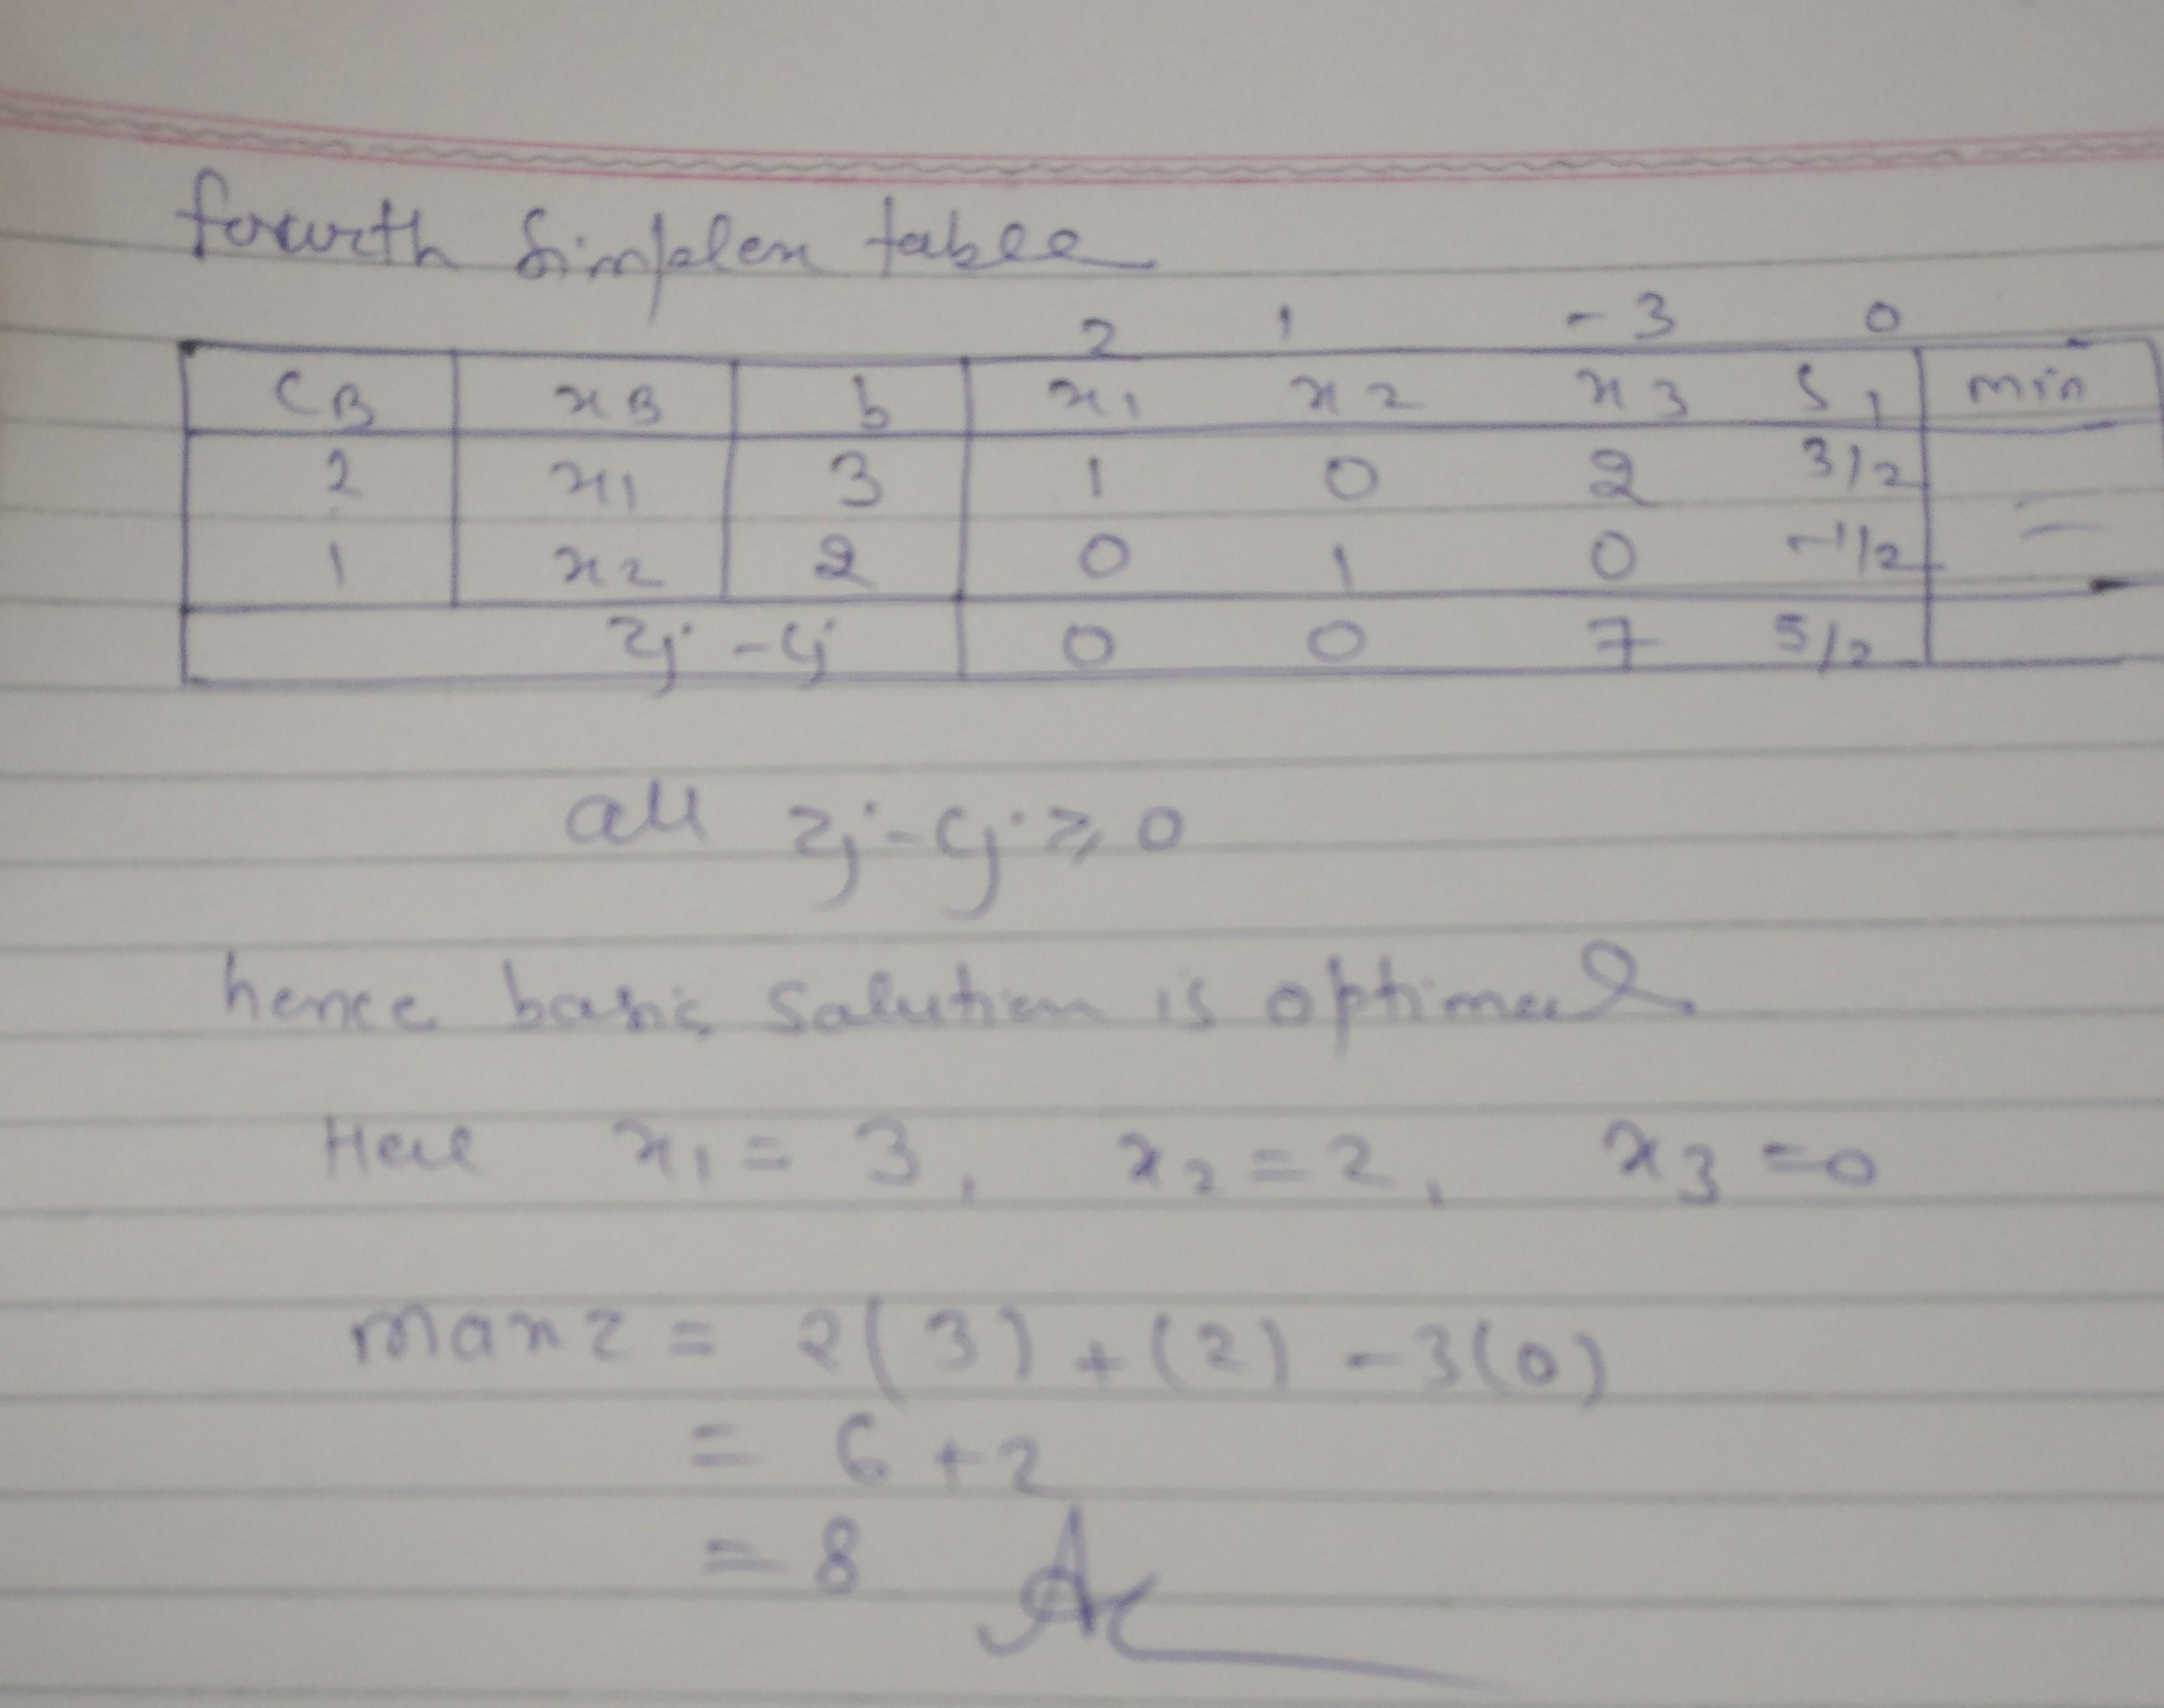 fourth Simplex table
2 1 -3 0
CB xB b x1 x2 x3 S1 min
2 x1 3 1 0 2 3/2
1 x2 2 0 1 0 -1/2 =
zj - cj 0 0 7 5/2
all zj - cj ≥ 0
hence basic solution is optimal
Here x1 = 3, x2 = 2, x3 = 0
max z = 2(3) + (2) - 3(0)
= 6 + 2
= 8